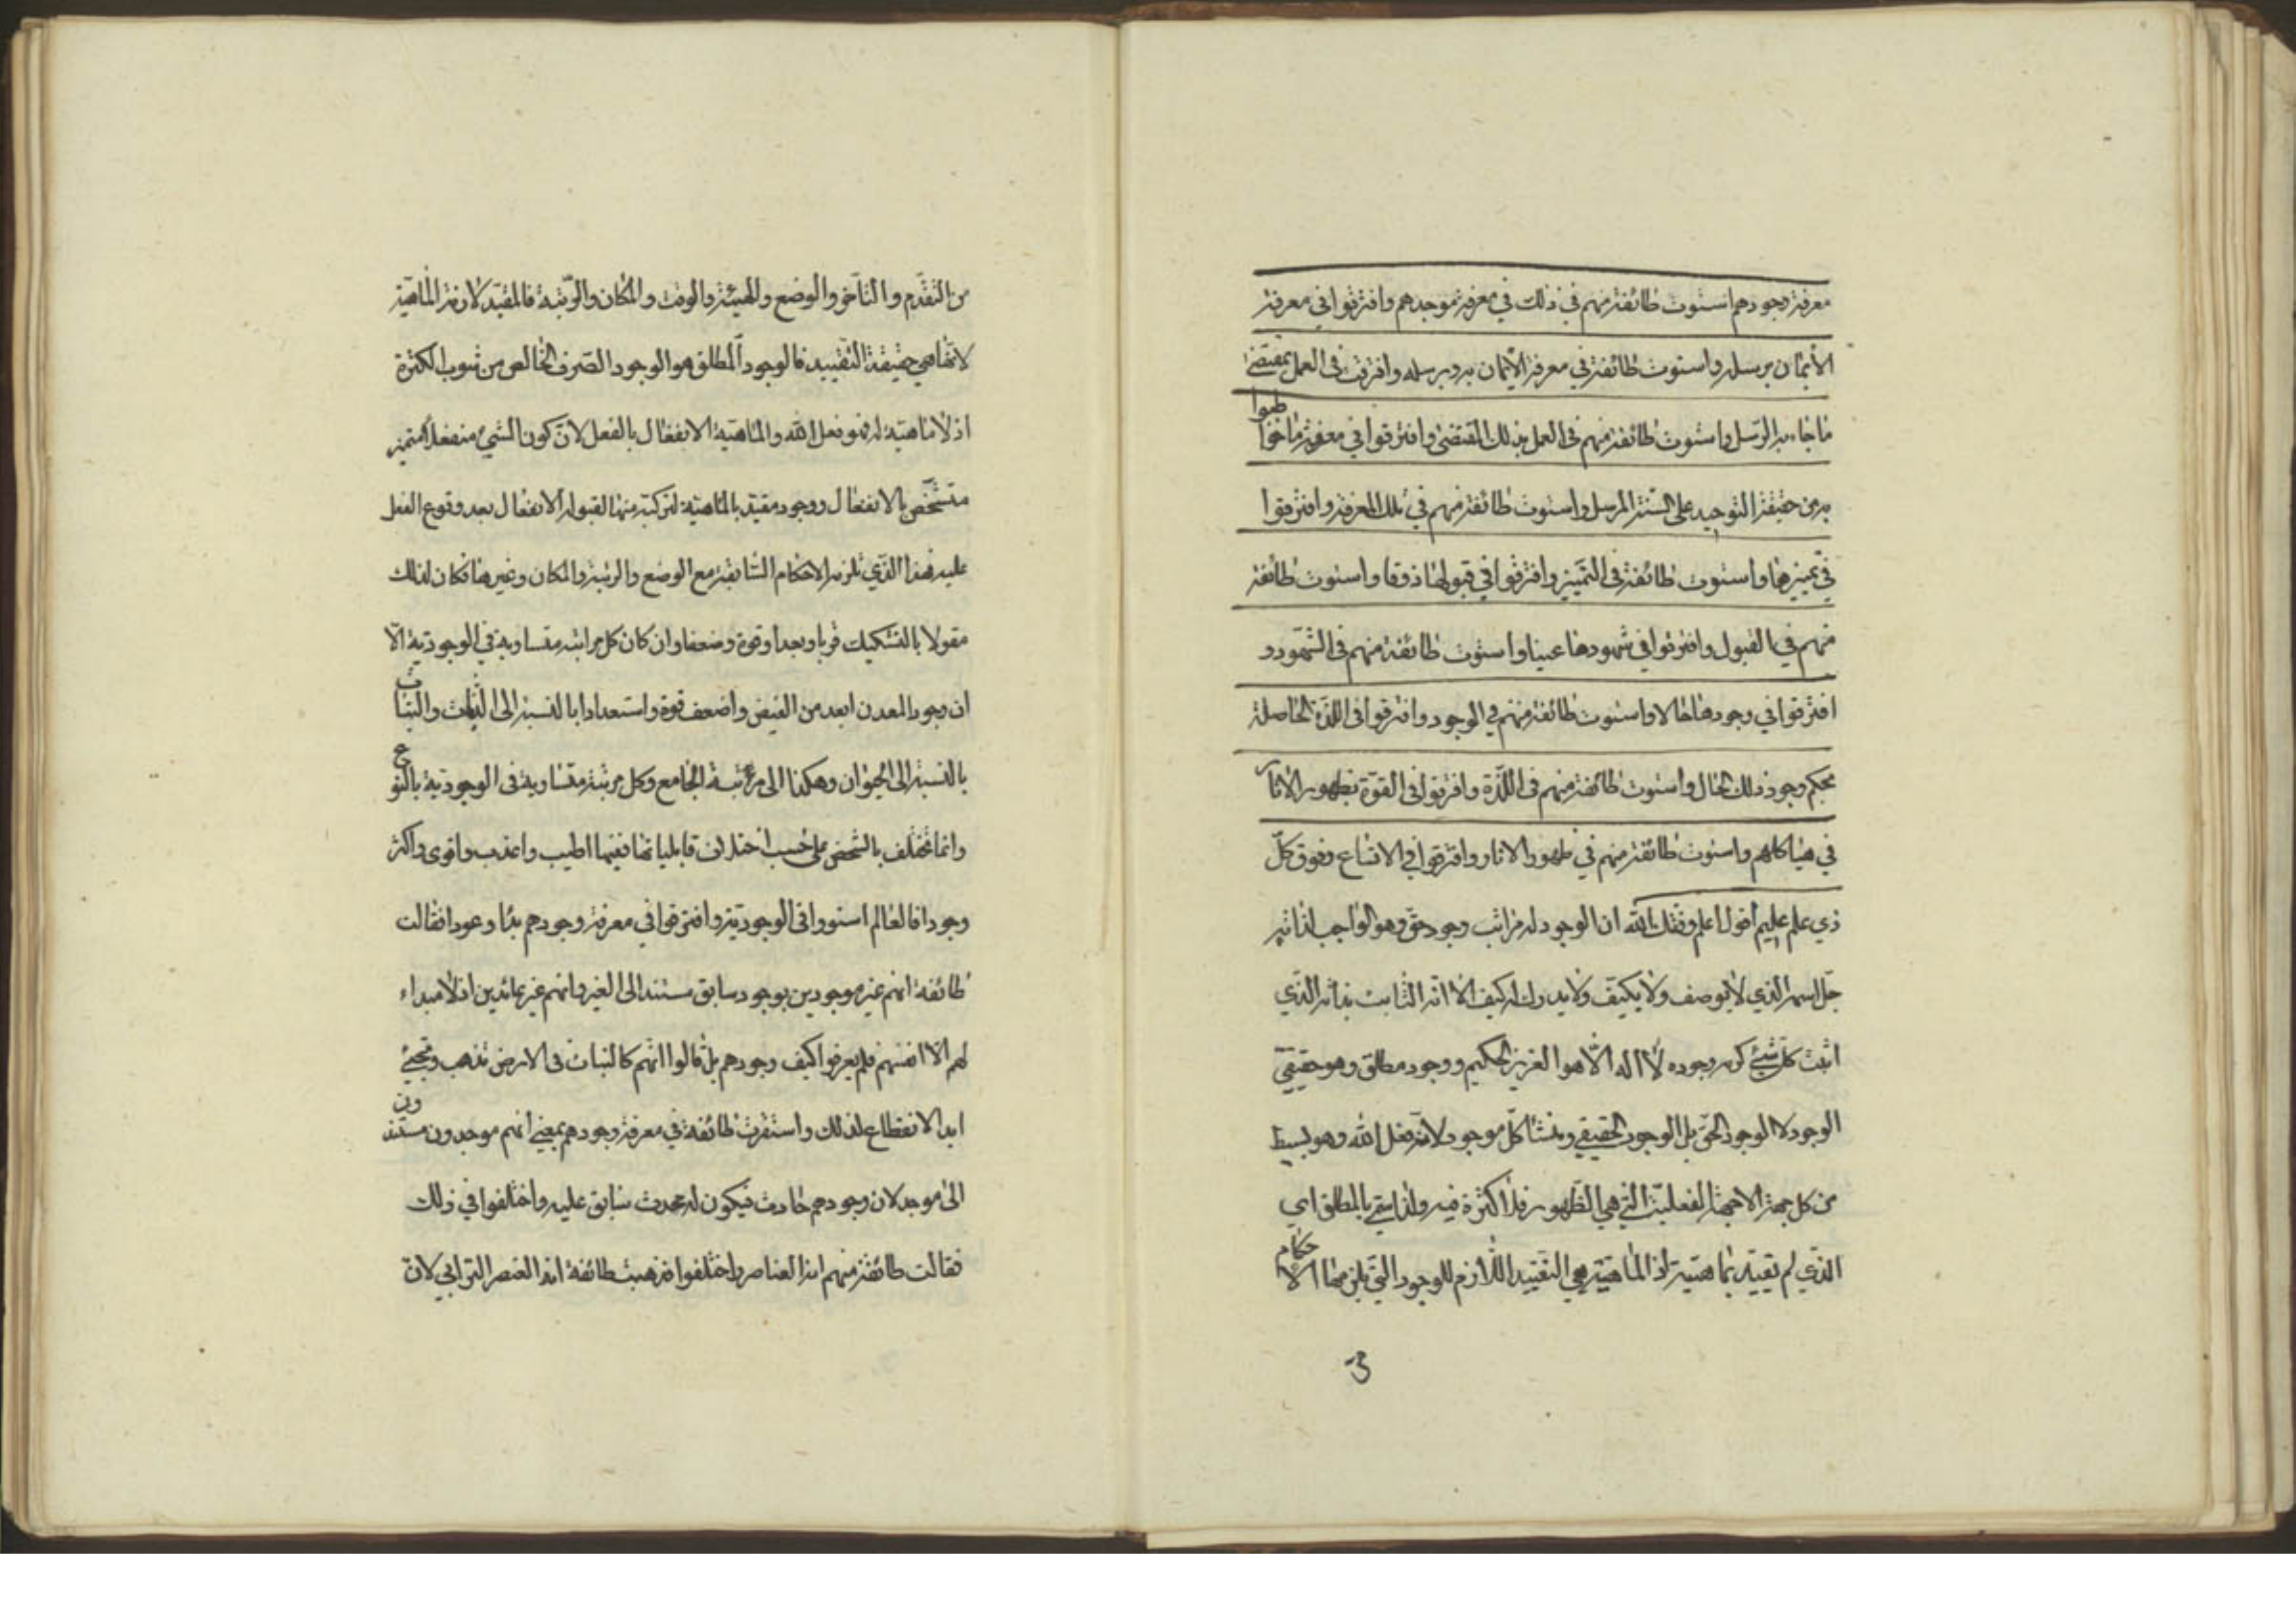 معرفة وجودهم استوت طائفة منهم في ذلك في معرفة موجدهم وافترقوا في معرفة
الأيمان برسله واستوت طائفة في معرفة الأيمان به وبرسله وافترقت في العمل بمقتضى
ما جاء به الرسل واستوت طائفة منهم في العمل بذلك المقتضى وافترقوا في معرفة ما خوطبوا
به من حقيقة التوحيد على السنة المرسل واستوت طائفة منهم في تلك المعرفة وافترقوا
في تميزها واستوت طائفة في التميز وافترقوا في قبولها ذوقا واستوت طائفة
منهم في القبول وافترقوا في شهودها عينا واستوت طائفة منهم في الشهود و
افترقوا في وجودها حالا واستوت طائفة منهم في الوجود وافترقوا في اللذة الحاصلة
بحكم وجود ذلك الحال واستوت طائفة منهم في اللذة وافترقوا في القوة بظهور الاثار
في هياكلهم واستوت طائفة منهم في ظهور الاثار وافترقوا في الاتساع وفوق كل
ذي علم عليم اقول اعلم وفقك الله ان الوجود له مراتب وجود حق وهو الواجب لذاته
جل اسمه الذي لا يوصف ولا يكيف ولا يدرك له كيف الا انه الثابت بذاته الذي
اثبت كل شيء كرم وجوده لا اله الا هو العزيز الحكيم ووجود مطلق وهو حقيقي
الوجود لا الوجود الحق بل الوجود الحقيقي ومنشأ كل موجود لانه فعل الله وهو بسيط
من كل جهة الا جهة الفعلية التي هي الظهور فلا كثرة فيه ولذا سمي بالمطلق اي
الذي لم تقيده بماهيته اذ الماهية هي التقييد اللازم للوجود التي يلزمها الاحكام
3
من التقدم والتاخر والوضع والهيئة والوقت والمكان والرتبة فالمقيد لازمته الماهية
لانها هي حقيقة التقييد فالوجود المطلق هو الوجود الصرف الخالص من شوب الكثرة
اذ لا ماهية له فهو فعل الله والماهية الانفعال بالفعل لان كون الشيء منفعلا متميز
متشخص بالانفعال ووجود مقيد بالماهية لتركبه منها لقبوله الانفعال بعد وقوع الفعل
عليه فهذا الذي تلزمه الاحكام السابقة مع الوضع والرتبة والمكان وغيرها فكان لذلك
مقولا بالتشكيك قربا وبعدا وقوة وضعفا وان كان كل مراتبه متساوية في الوجودية الا
ان وجود المعدن ابعد من الفيض واضعف قوة واستعدادا بالنسبة الى النبات والنبات
بالنسبة الى الحيوان وهكذا الى مرتبة الجامع وكل مرتبة متساوية في الوجودية بالنوع
وانما تختلف بالشخص على حسب اختلاف قابلياتها فبينها اطيب واعذب واقوى واكثر
وجودا فالعالم استووا في الوجودية وافترقوا في معرفة وجودهم بدأ وعودا فقالت
طائفة انهم غير موجودين بوجود سابق مستند الى الغير وانهم غير عائدين اذ لا مبداء
لهم الا انفسهم فلم يعرفوا كيف وجودهم بل قالوا انهم كالنبات في الارض تذهب وتجيئ
ابدا لا انقطاع لذلك واستقرت طائفة في معرفة وجودهم بمعنى انهم موجدون مستندون
الى موجد لان وجودهم حادث فيكون له محدث سابق عليه واختلفوا في ذلك
فقالت طائفة منهم انه العناصر واختلفوا فذهبت طائفة انه العنصر الترابي لان